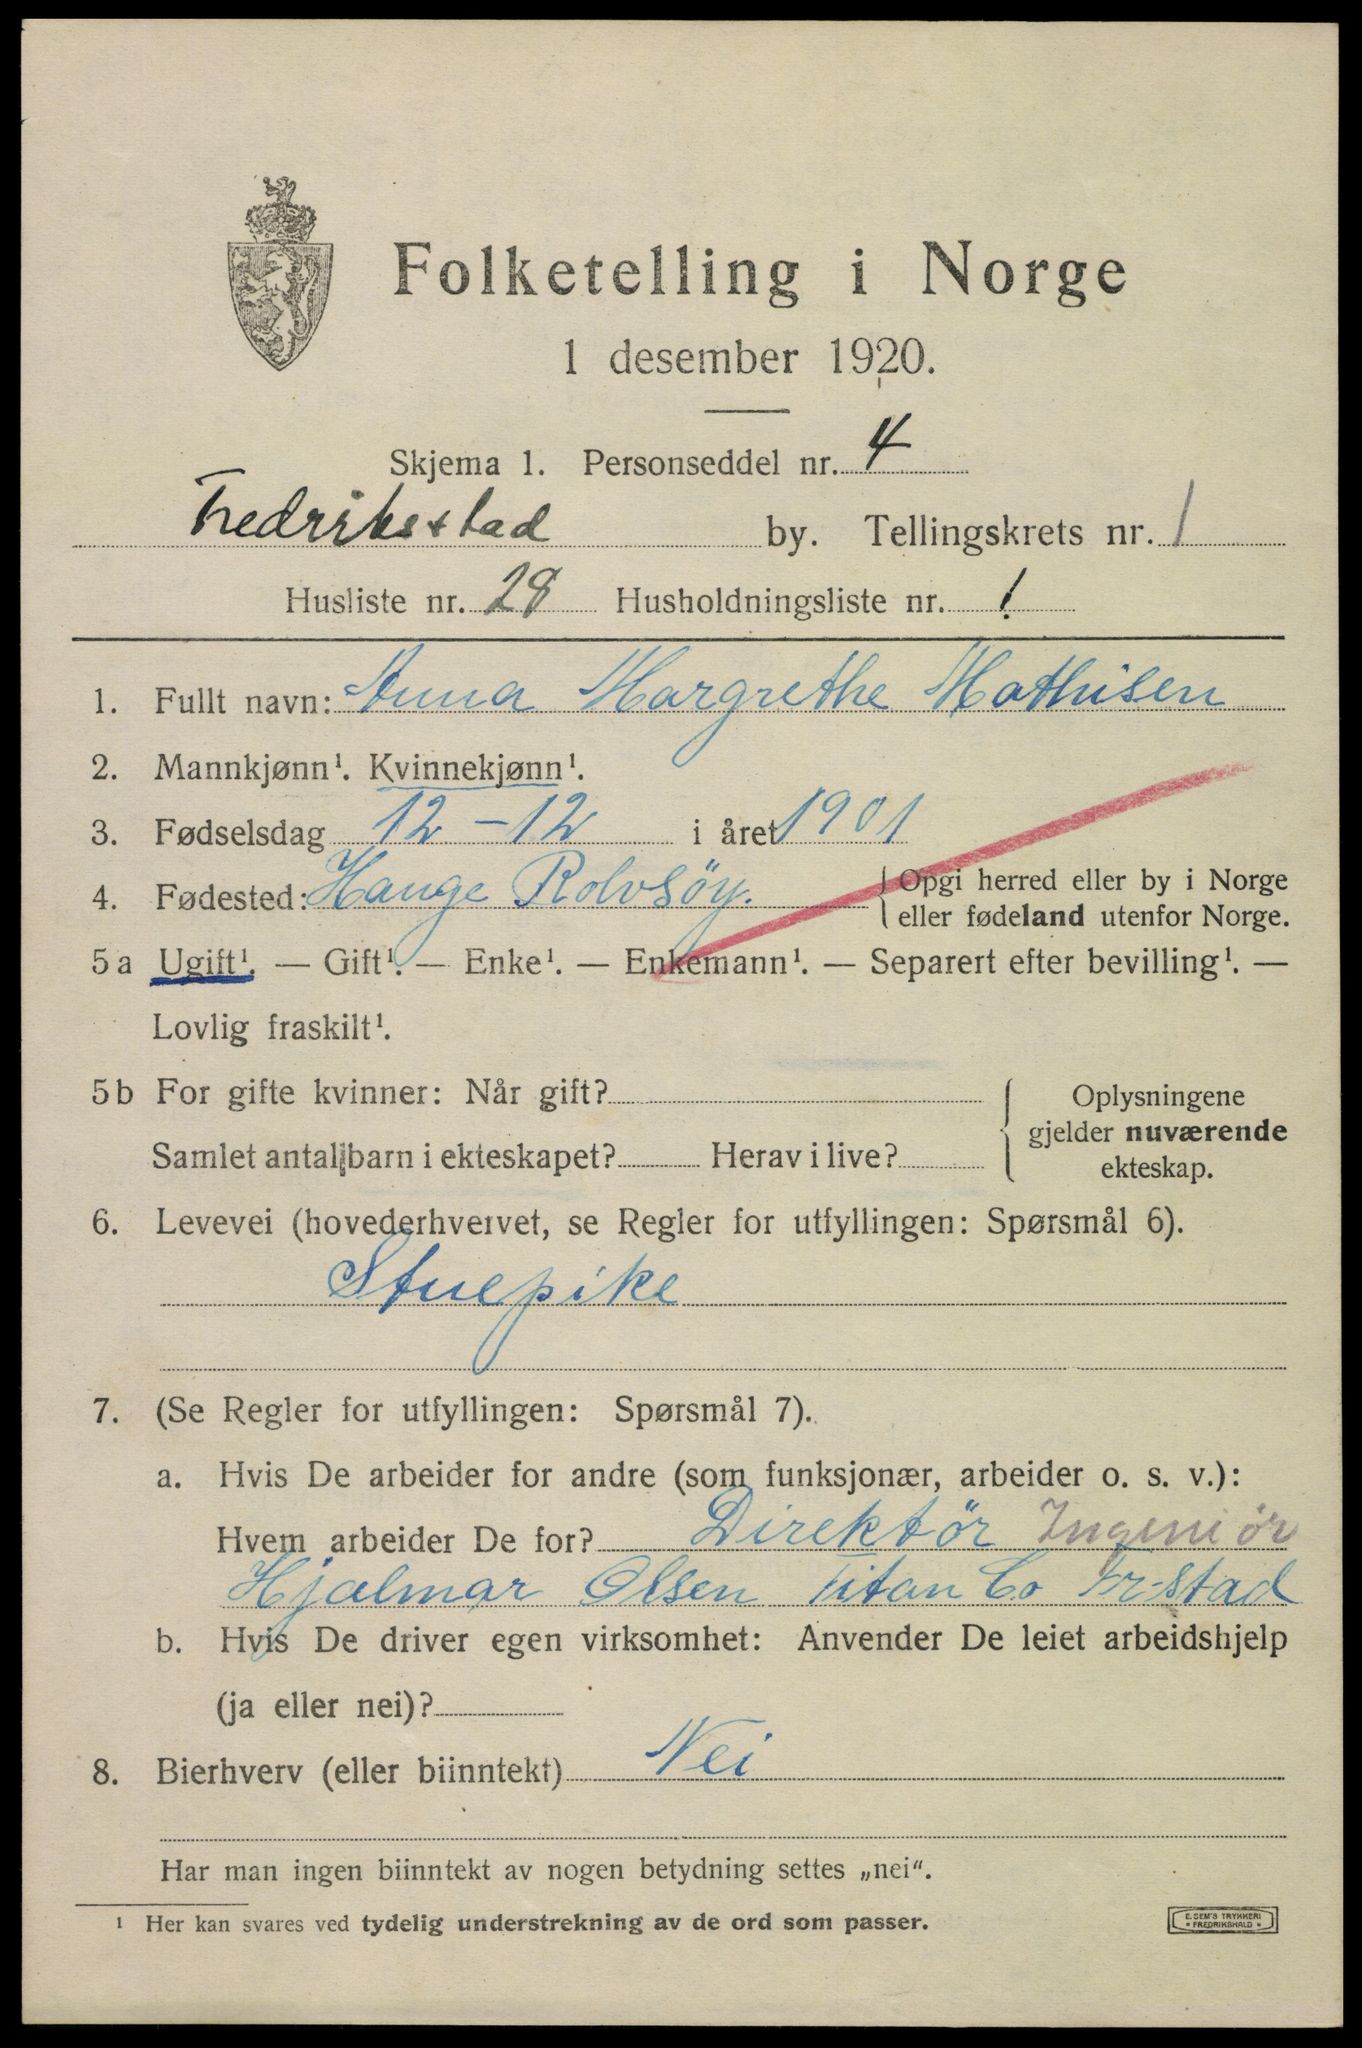 Folketelling i Norge
1 desember 1920.
Skjema 1. Personseddel nr. 4
Fredriksstad by. Tellingskrets nr. 1
Husliste nr. 28 Husholdningsliste nr. 1
1. Fullt navn: Anna Margrethe Mathisen
2. Mannkjønn¹. Kvinnekjønn¹.
3. Fødselsdag 12-12 i året 1901
4. Fødested: Hauge Rolvsöy. { Opgi herred eller by i Norge
eller fødeland utenfor Norge.
5a Ugift¹. — Gift¹. — Enke¹. — Enkemann¹. — Separert efter bevilling¹. —
Lovlig fraskilt¹.
5b For gifte kvinner: Når gift? { Oplysningene
gjelder nuværende
Samlet antal barn i ekteskapet? Herav i live?
ekteskap.
6. Levevei (hovederhvervet, se Regler for utfyllingen: Spørsmål 6).
Stuepike
7. (Se Regler for utfyllingen: Spørsmål 7).
a. Hvis De arbeider for andre (som funksjonær, arbeider o. s. v.):
Hvem arbeider De for? Direktör Ingeniör
Hjalmar Olsen Titan Co Fr-stad
b. Hvis De driver egen virksomhet: Anvender De leiet arbeidshjelp
(ja eller nei)?
8. Bierhverv (eller biinntekt) Nei
Har man ingen biinntekt av nogen betydning settes „nei“.
¹ Her kan svares ved tydelig understrekning av de ord som passer.
E. SEM'S TRYKKERI
* FREDRIKSHALD *